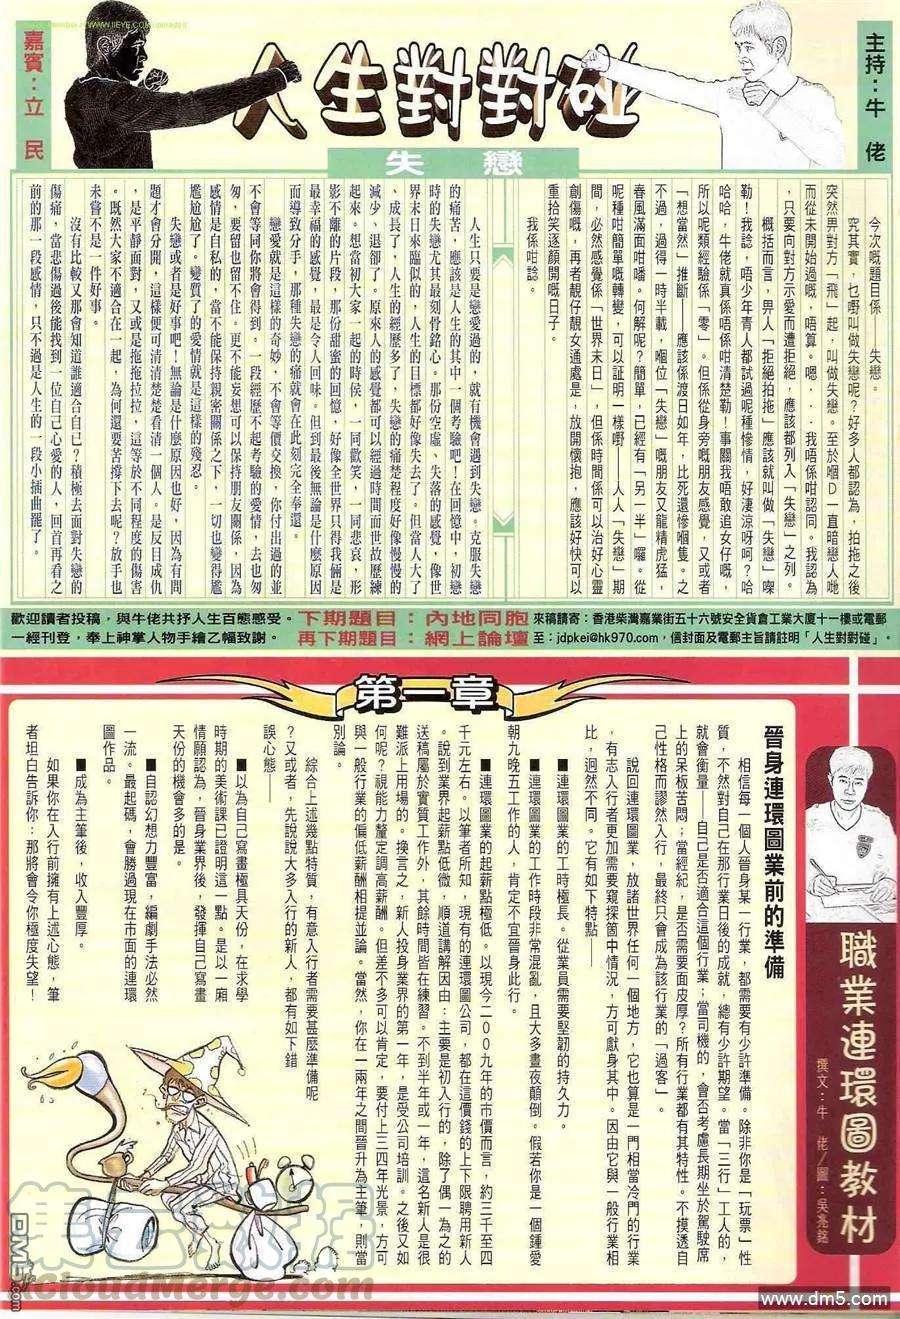 人生對對碰
嘉賓：立民
主持：牛佬
失戀
今次嘅題目係——失戀。
究其實，乜嘢叫做失戀呢？好多人都認為，拍拖之後
突然畀對方「飛」起，叫做失戀。至於嗰D一直暗戀人哋
而從未開始過嘅，唔算。嗯．．我唔係咁認同。我認為
，只要向對方示愛而遭拒絕，應該都列入「失戀」之列。
概括而言，畀人「拒絕拍拖」應該就叫做「失戀」㗎
勒！我諗，唔少年青人都試過呢種慘情，好淒涼呀呵？哈
哈哈，牛佬就真係唔係咁清楚勒！事關我唔敢追女仔嘅，
所以呢類經驗係「零」。但係從身旁嘅朋友感覺，又或者
「想當然」推斷——應該係渡日如年，比死還慘嗰隻。之
不過，過得一時半載，嗰位「失戀」嘅朋友又龍精虎猛，
春風滿面咁噃。何解呢？簡單，已經有「另一半」囉。從
呢種咁簡單嘅轉變，可以証明一樣嘢——人人「失戀」期
間，必然感覺係「世界末日」，但係時間係可以治好心靈
創傷嘅，再者靚仔靚女通處是，放開懷抱，應該好快可以
重拾笑逐顏開嘅日子。
我係咁諗。
人生只要是戀愛過的，就有機會遇到失戀。克服失戀
的痛苦，應該是人生的其中一個考驗吧！在回憶中，初戀
時的失戀尤其最刻骨銘心。那份空虛、失落的感覺，像世
界末日來臨似的，人生的目標都好像失去了。但當人大了
、成長了，人生的經歷多了，失戀的痛楚程度好像慢慢的
減少、退卻了。原來人的感覺都可以經過時間而世故歷練
起來。想當初大家一起的時候，一同歡笑，一同悲哀，形
影不離的片段，那份甜蜜的回憶，好像全世界只得我倆是
最幸福的感覺，最是令人回味。但到最後無論是什麼原因
而導致分手，那種失戀的痛就會在此刻完全奉還。
戀愛就是這樣的奇妙，不會等價交換，你付出過的並
不會等同你將會得到。一段經歷不起考驗的愛情，去也匆
匆，要留也留不住。更不能妄想可以保持朋友關係，因為
感情是自私的，當不能保持親密關係之下，一切也變得尷
尷尬尬了。變質了的愛情就是這樣的殘忍。
失戀或者是好事吧！無論是什麼原因也好，因為有問
題才會分開，這樣便可清清楚楚看清一個人。是反目成仇
，是平靜面對，又或是拖拖拉拉，這等於不同程度的傷害
。既然大家不適合在一起，為何還要苦撐下去呢？放手也
未嘗不是一件好事。
沒有比較又那會知道誰適合自己？積極去面對失戀的
傷痛，當悲傷過後能找到一位自己心愛的人，回首再看之
前的那一段感情，只不過是人生的一段小插曲罷了。
歡迎讀者投稿，與牛佬共抒人生百態感受。
一經刊登，奉上神掌人物手繪乙幅致謝。
下期題目：內地同胞
再下期題目：網上論壇
來稿請寄：香港柴灣嘉業街五十六號安全貨倉工業大廈十一樓或電郵
至：jdpkei@hk970.com，信封面及電郵主旨請註明「人生對對碰」。
第一章
職業連環圖教材
撰文：牛佬／圖：吳兆銘
晉身連環圖業前的準備
相信每一個人晉身某一行業，都需要有少許準備。除非你是「玩票」性
質，不然對自己在那行業日後的成就，總有少許期望。當「三行」工人的，
就會衡量——自己是否適合這個行業；當司機的，會否考慮長期坐於駕駛席
上的呆板苦悶；當經紀，是否需要面皮厚？所有行業都有其特性。不摸透自
己性格而謬然入行，最終只會成為該行業的「過客」。
說回連環圖業，放諸世界任何一個地方，它也算是一門相當冷門的行業
，有志入行者更加需要窺探箇中情況，方可獻身其中。因由它與一般行業相
比，迥然不同。它有如下特點——
■連環圖業的工時極長。從業員需要堅韌的持久力。
■連環圖業的工作時段非常混亂，且大多晝夜顛倒。假若你是一個鍾愛
朝九晚五工作的人，肯定不宜晉身此行。
■連環圖業的起薪點極低。以現今二００九年的市價而言，約三千至四
千元左右。以筆者所知，現有的連環圖公司，都在這價錢的上下限聘用新人
。說到業界起薪點低微，順道講解因由：主要是初入行的，除了偶一為之的
送稿屬於實質工作外，其餘時間皆在練習。不到半年或一年，這名新人是很
難派上用場的。換言之，新人投身業界的第一年，是受公司培訓。之後又如
何呢？視能力釐定調高薪酬。但差不多可以肯定，要付上三四年光景，方可
與一般行業的偏低薪酬相提並論。當然，你在一兩年之間晉升為主筆，則當
別論。
綜合上述幾點特質，有意入行者需要甚麼準備呢
？又或者，先說說大多入行的新人，都有如下錯
誤心態——
■以為自己寫畫極具天份，在求學
時期的美術課已證明這一點。是以一廂
情願認為，晉身業界後，發揮自己寫畫
天份的機會多的是。
■自認幻想力豐富，編劇手法必然
一流。最起碼，會勝過現在市面的連環
圖作品。
■成為主筆後，收入豐厚。
如果你在入行前擁有上述心態，筆
者坦白告訴你：那將會令你極度失望！
DM5.com
www.dm5.com